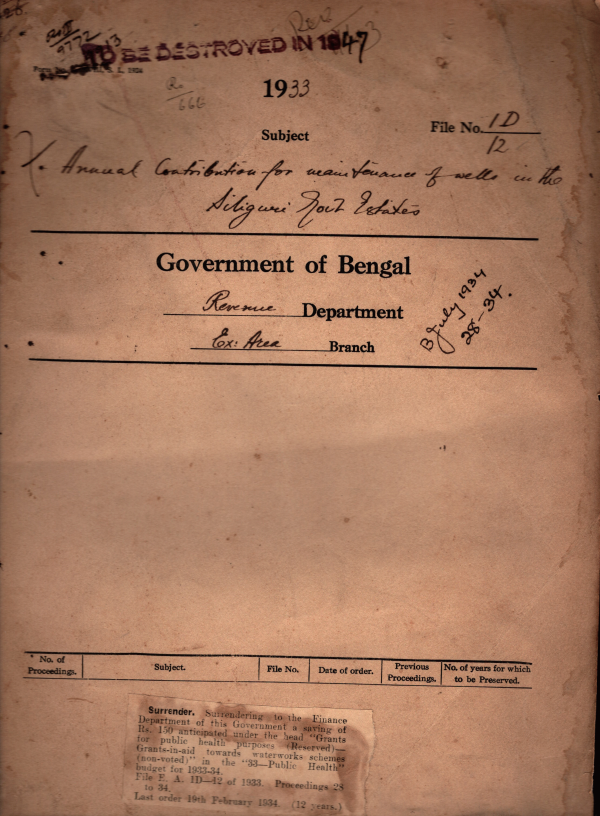 TO BE DESTROYED IN 1947
1933
Subject
File No. 1D/12
Annual Contribution for maintenance of wells in the
Siliguri Govt Estates
Government of Bengal
Revenue Department
Ex: Area Branch
B July 1934
28-34.
No. of Proceedings. Subject. File No. Date of order. Previous Proceedings. No. of years for which to be Preserved.
Surrender. Surrendering to the Finance
Department of this Government a saving of
Rs. 150 anticipated under the head "Grants
for public health purposes (Reserved)—
Grants-in-aid towards waterworks schemes
(non-voted)" in the "33—Public Health"
budget for 1933-34.
File E. A. 1D—12 of 1933. Proceedings 28
to 34.
Last order 19th February 1934. (12 years.)